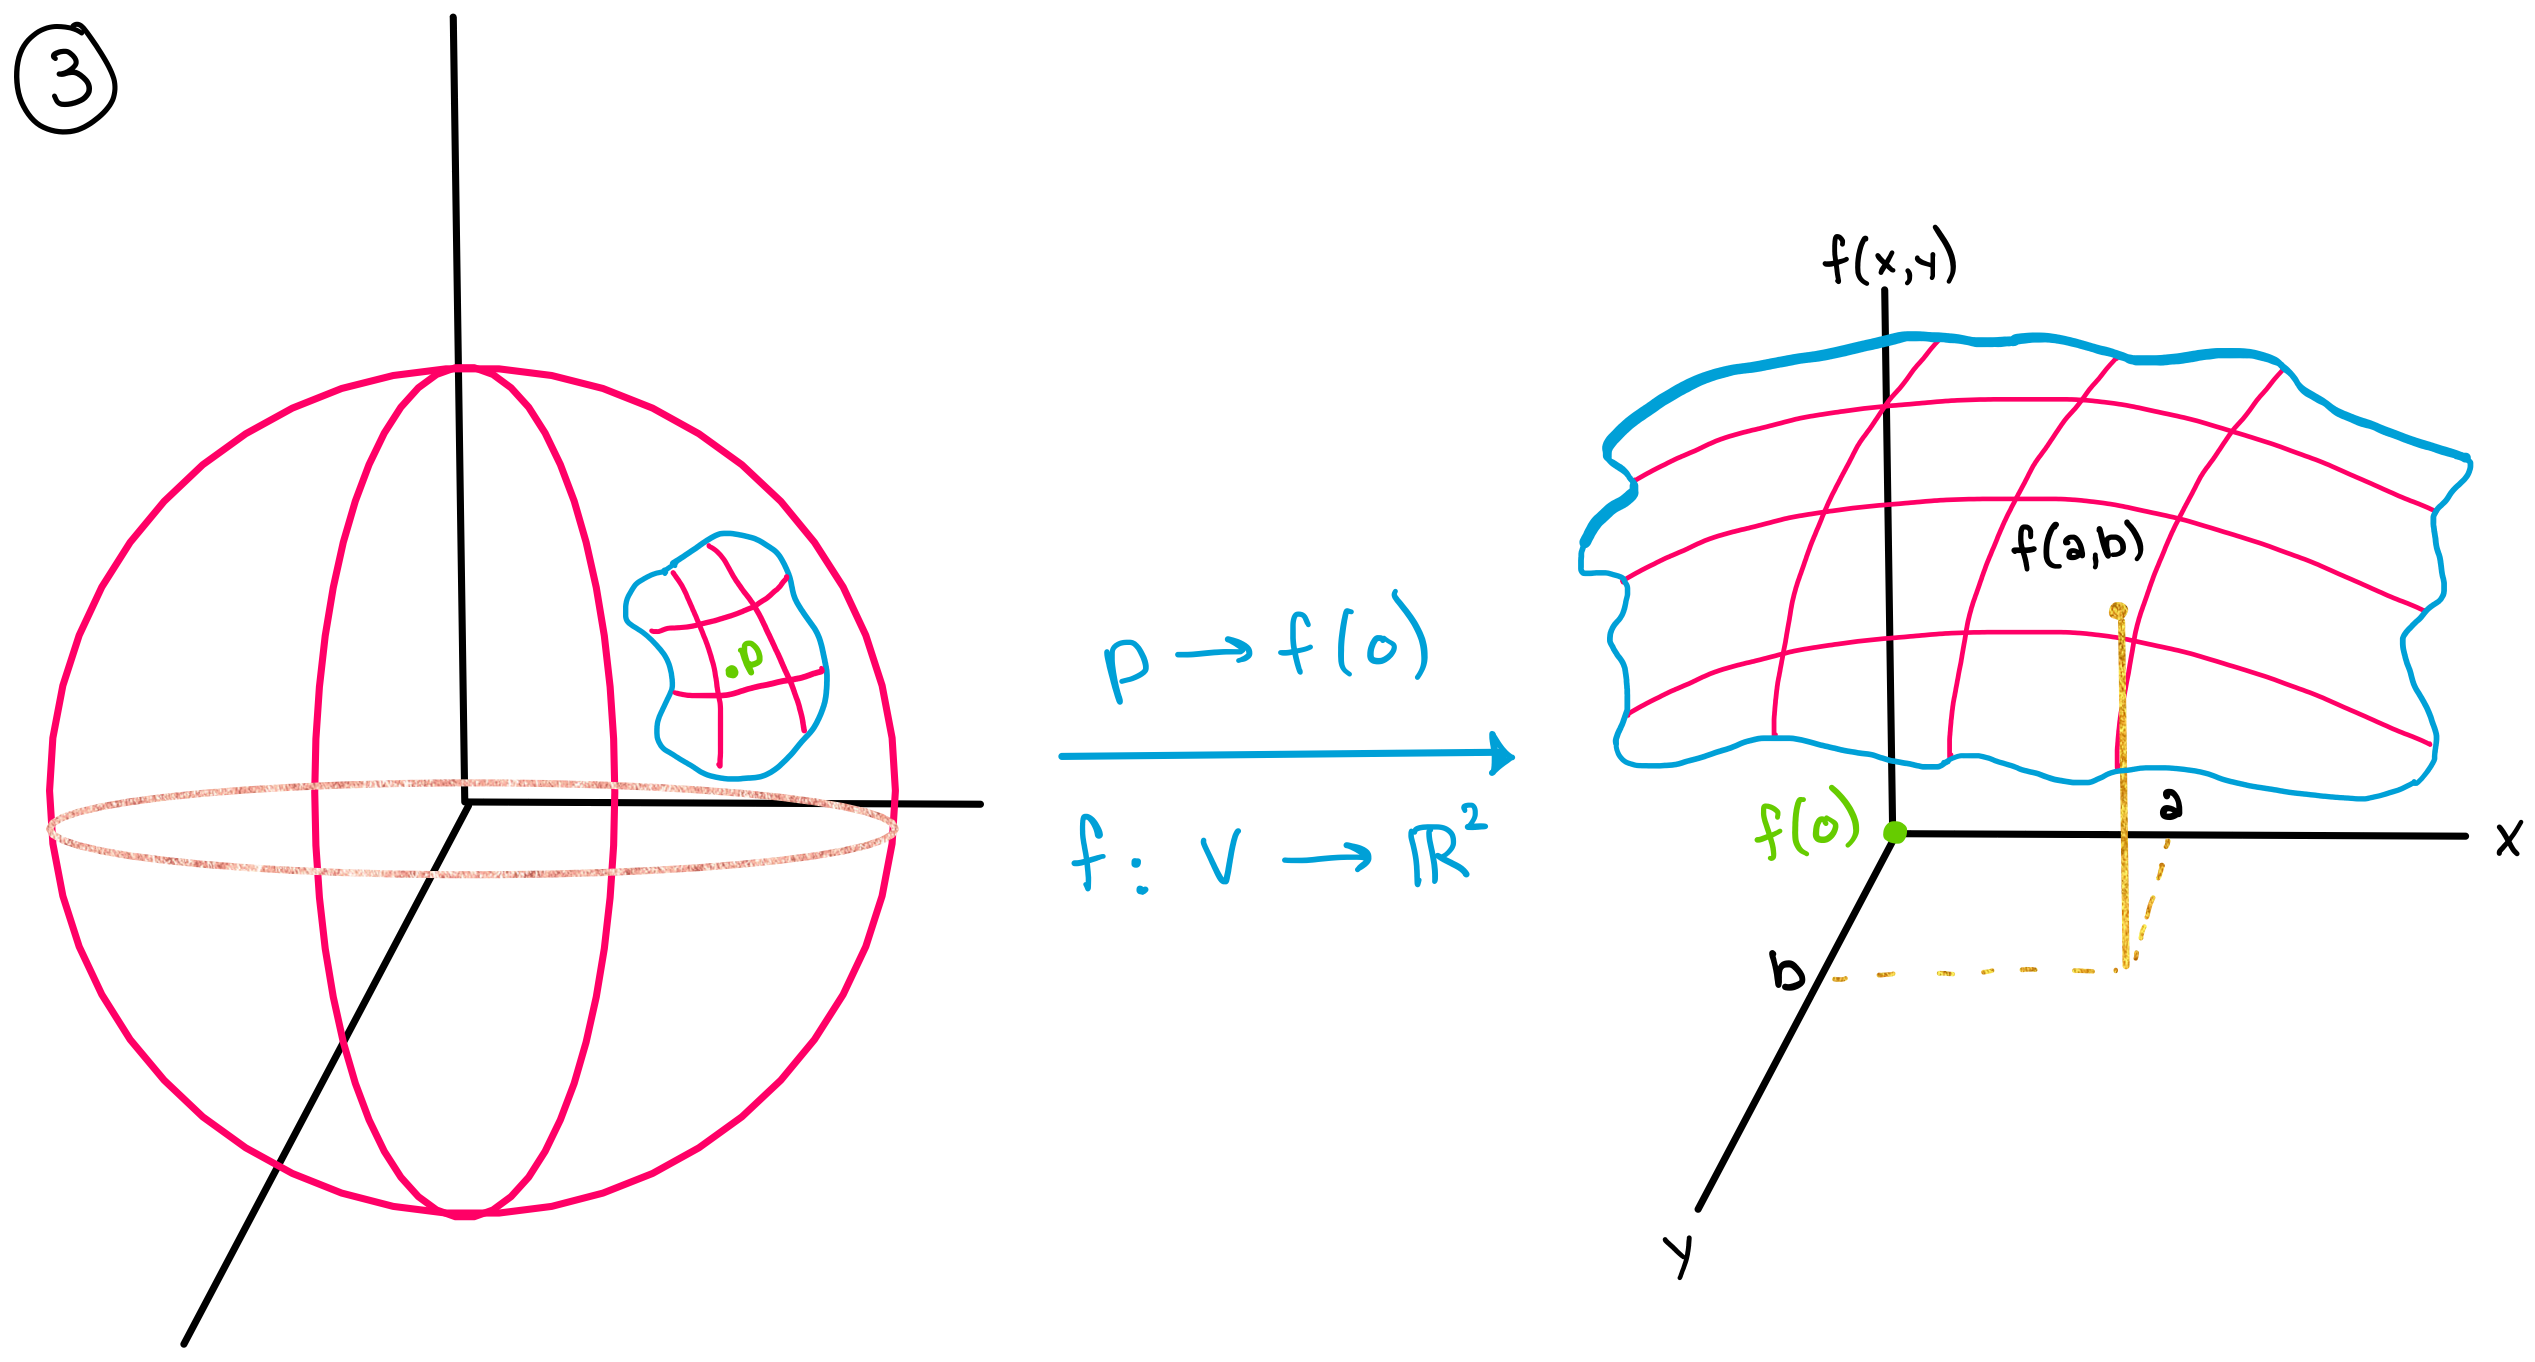 3
p
p → f(0)
f: V → ℝ²
f(x,y)
f(a,b)
a
f(0)
x
b
y